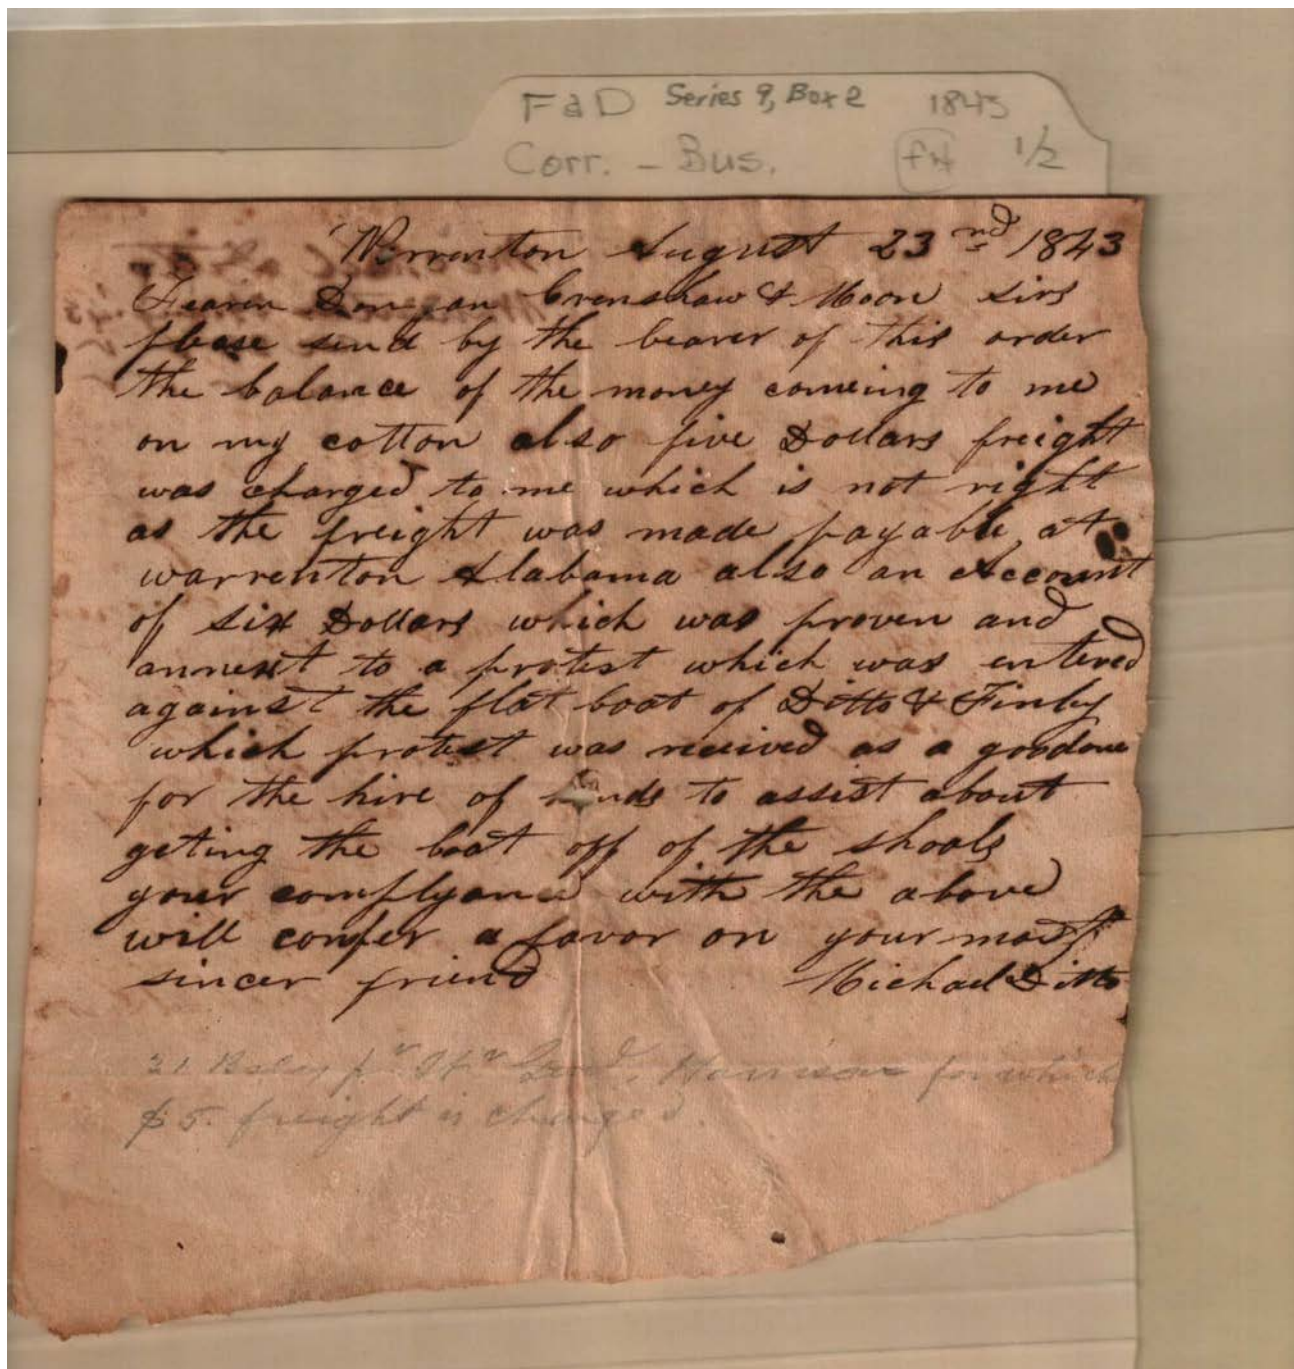 F & D Series 9, Box 2 1843
Corr. - Bus. 1/2
Warrenton August 23nd 1843
Fearn Donegan Crenshaw & Moon sirs
please send by the bearer of this order
the balance of the money comeing to me
on my cotton also five Dollars freight
was charged to me which is not right
as the freight was made payable at
warrenton Alabama also an Account
of six Dollars which was proven and
annext to a protest which was entered
against the flat boat of Ditto & Finley
which protest was received as a good one
for the hire of hands to assist about
geting the boat off of the shoals
your complyance with the above
will confer a favor on your most
sincer friend Michael Ditto
21 Bales pr Str Harrison for which
$5. freight is charged.